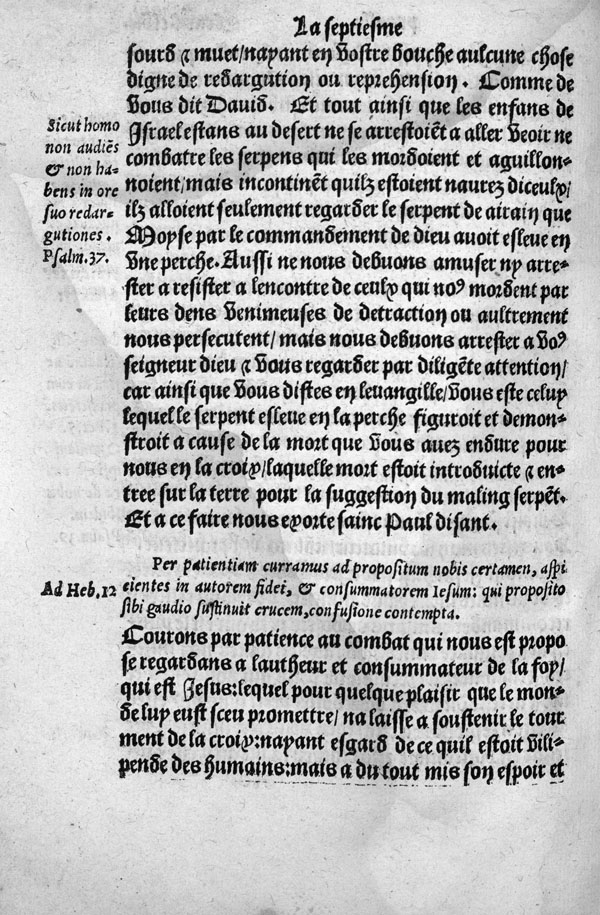 La septiesme
sourd & muet/nayant en vostre bouche aulcune chose
digne de redargution ou reprehension. Comme de
vous dit David. Et tout ainsi que les enfans de
Israel estans au desert ne se arrestoiēt a aller veoir ne
combatre les serpens qui les mordoient et aguillon-
noient/mais incontinēt quilz estoient naurez diceulx/
ilz alloient seulement regarder le serpent de airain que
Moyse par le commandement de dieu avoit esleve en
vne perche. Aussi ne nous debuons amuser ny arre-
ster a resister a lencontre de ceulx qui noꝰ mordent par
leurs dens venimeuses de detraction ou aultrement
nous persecutent/ mais nous debuons arrester a voꝰ
seigneur dieu & vous regarder par diligēte attention/
car ainsi que vous distes en levangille/vous este celuy
lequel le serpent esleve en la perche figuroit et demon-
stroit a cause de la mort que vous avez endure pour
nous en la croix/laquelle mort estoit introducte & en-
tree sur la terre pour la suggestion du maling serpēt.
Et a ce faire nous exorte sainc Paul disant.
Sicut homo
non audiēs
& non ha-
bens in ore
suo redar-
gutiones.
Psalm.37.
Per patientiam curramus ad propositum nobis certamen, aspi
cientes in autorem fidei, & consummatorem Iesum: qui proposito
sibi gaudio sustinuit crucem, confusione contempta.
Ad Heb.12
Courons par patience au combat qui nous est propo
se regardans a lautheur et consummateur de la foy/
qui est Jesus:lequel pour quelque plaisir que le mon-
de luy eust sceu promettre/ na laisse a soustenir le tour
ment de la croix:nayant esgard de ce quil estoit vili-
pende des humains:mais a du tout mis son espoir et